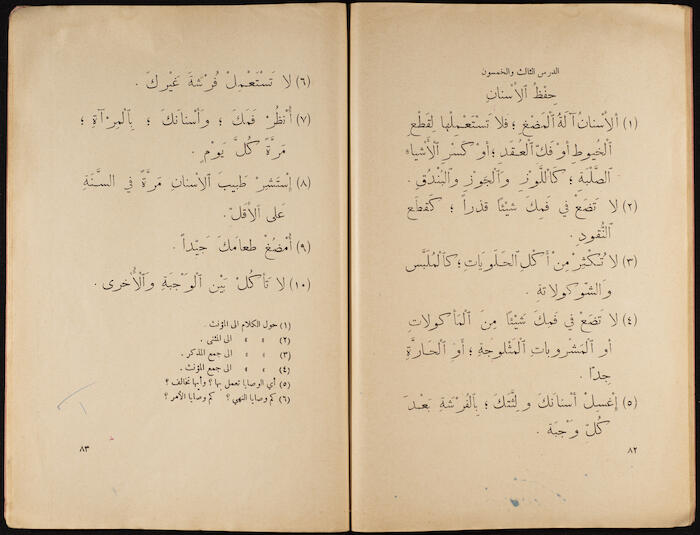 الدرس الثالث والخمسون
حِفْظُ ٱلْأَسْنانِ
(١) اَلْأَسْنانُ آلَةُ ٱلْمَضْغِ ؛ فَلا تَسْتَعْمِلْها لِقَطْعِ
ٱلْخُيوطِ أَوْ فَكِّ ٱلْعُقَدِ ؛ أَوْ كَسْرِ ٱلْأَشْياءِ
ٱلصُّلْبَةِ ؛ كَاللَّوْزِ وَٱلْجَوْزِ وَٱلْبُنْدُقِ .
(٢) لا تَضَعْ في فَمِكَ شَيْئاً قَذِراً ؛ كَقِطَعِ
ٱلنُّقودِ .
(٣) لا تُكْثِرْ مِنْ أَكْلِ ٱلْحَلَوِيَاتِ ؛ كَٱلْمُلَبَّسِ
وَٱلشّوكولاتةِ .
(٤) لا تَضَعْ في فَمِكَ شَيْئاً مِنَ ٱلْمَأْكولاتِ
أَوِ ٱلْمَشْروباتِ ٱلْمَثْلوجَةِ ؛ أَوِ ٱلْحارَّةِ
جِدّاً .
(٥) إِغْسِلْ أَسْنانَكَ وَلِثَّتَكَ ؛ بِٱلْفُرْشَةِ بَعْدَ
كُلِّ وَجْبَةٍ .
٨٢
(٦) لا تَسْتَعْمِلْ فُرْشَةَ غَيْرِكَ .
(٧) أُنْظُرْ فَمَكَ ؛ وَأَسْنانَكَ ؛ بِٱلْمِرْآةِ ؛
مَرَّةً كُلَّ يَوْمٍ .
(٨) إِسْتَشِرْ طَبيبَ ٱلْأَسْنانِ مَرَّةً في ٱلسَّنَةِ
عَلى ٱلْأَقَلِّ .
(٩) أُمْضُغْ طَعامَكَ جَيِّداً .
(١٠) لا تَأْكُلْ بَيْنَ ٱلْوَجْبَةِ وَٱلْأُخْرى .
(١) حول الكلام الى المؤنث .
(٢) » » الى المثنى .
(٣) » » الى جمع المذكر .
(٤) » » الى جمع المؤنث .
(٥) أي الوصايا تعمل بها ؟ وأيها تخالف ؟
(٦) كم وصايا النهي ؟ كم وصايا الأمر ؟
٨٣